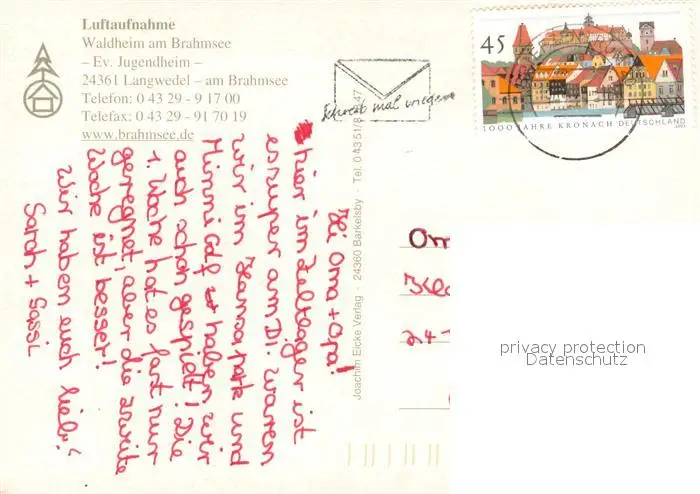 Luftaufnahme
Waldheim am Brahmsee
– Ev. Jugendheim –
24361 Langwedel – am Brahmsee
Telefon: 0 43 29 - 9 17 00
Telefax: 0 43 29 - 91 70 19
www.brahmsee.de
Schreib mal wieder
45
1000 JAHRE KRONACH DEUTSCHLAND
Joachim Eicke Verlag - 24360 Barkelsby - Tel. 0 43 51/8
47
Hi Oma + Opa!
hier im Zeltlager ist
es super am DI. waren
wir im Hansa park und
Minni Golf haben wir
auch schon gespielt! Die
1. Woche hat es fast nur
geregnet, aber die zweite
Woche ist besser!
Wir haben euch lieb!
Sarah + Sassi
Om
24
privacy protection
Datenschutz